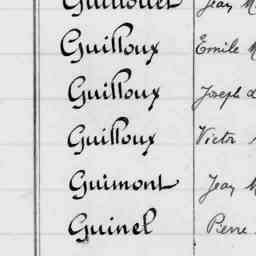 Guillouet Jean M
Guilloux Emile M
Guilloux Joseph
Guilloux Victor
Guimont Jean M
Guinel Pierre